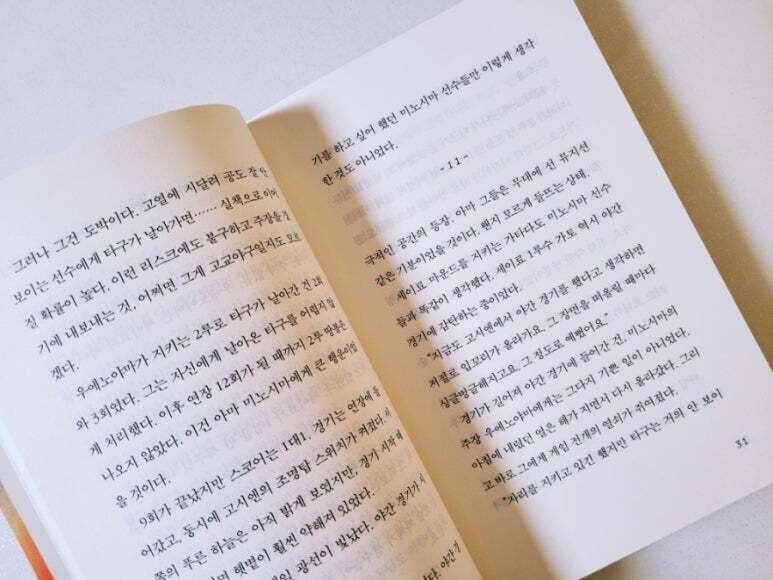 그러나 그건 도박이다. 고열에 시달려 공도 잘 안
보이는 선수에게 타구가 날아가면…… 실책으로 이어
질 확률이 높다. 이런 리스크에도 불구하고 주장을 경
기에 내보내는 것, 어쩌면 그게 고교야구일지도 모르
겠다.
우에노야마가 지키는 2루로 타구가 날아간 건 2회
와 3회였다. 그는 자신에게 날아온 타구를 어렵지 않
게 처리했다. 이후 연장 12회가 될 때까지 2루 땅볼은
나오지 않았다. 이건 아마 미노시마에게 큰 행운이었
을 것이다.
9회가 끝났지만 스코어는 1대1. 경기는 연장에 들
어갔고, 동시에 고시엔의 조명탑 스위치가 켜졌다.
쪽의 푸른 하늘은 아직 밝게 보였지만, 경기 시작
햇볕이 훨씬 약해져 있었다.
광선이 빛났다. 야간 경기가
야간
기를 하고 싶어 했던 미노시마 선수들만 이렇게 생각
한 것도 아니었다.
- 11 -
극적인 공간의 등장. 아마 그들은 무대에 선 뮤지션
같은 기분이었을 것이다. 왠지 모르게 들뜨는 상태.
세이료 마운드를 지키는 가타다도 미노시마 선수
들과 똑같이 생각했다. 세이료 1루수 가토 역시 야간
경기에 감탄하는 중이었다.
“지금도 고시엔에서 야간 경기를 했다고 생각하면
저절로 입꼬리가 올라가요. 그 장면을 떠올릴 때마다
싱글벙글해지고요. 그 정도로 예뻤어요.”
경기가 길어져 야간 경기에 들어간 건, 미노시마의
주장 우에노야마에게는 그다지 기쁜 일이 아니었다.
아침에 내렸던 열은 해가 지면서 다시 올라갔다. 그리
고 바로 그에게 게임 전개의 열쇠가 쥐여졌다.
“자리를 지키고 있긴 했지만 타구는 거의 안 보이
31